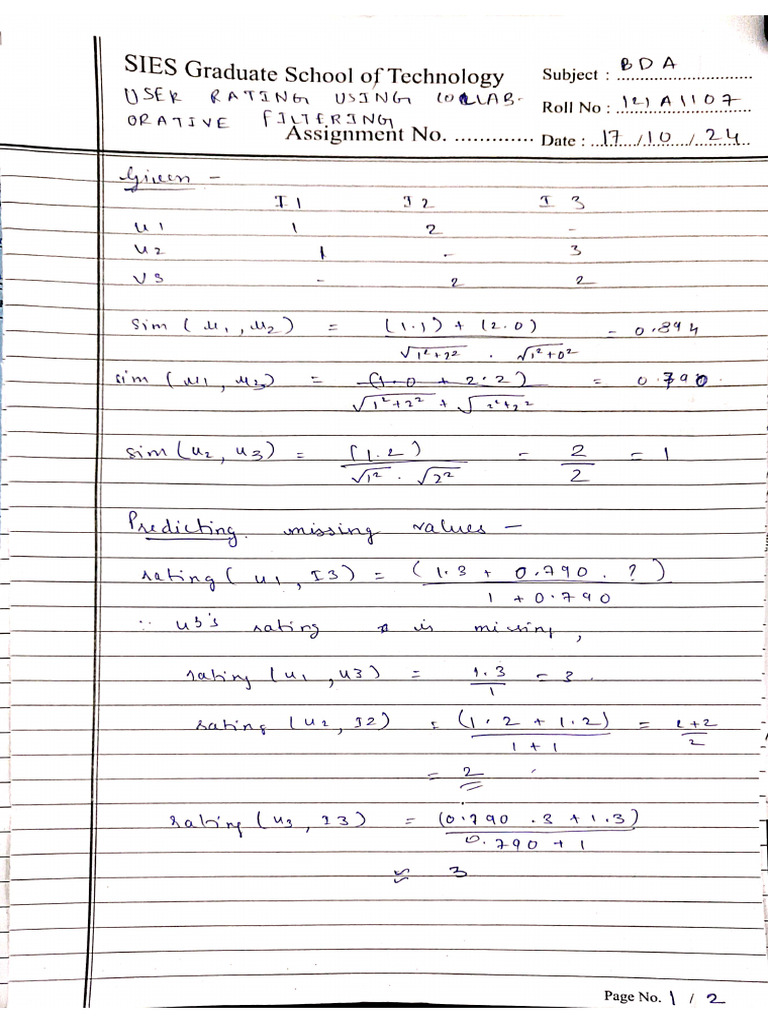 SIES Graduate School of Technology
Subject : BDA
USER RATING USING COLLAB-
Roll No : 121A1107
ORATIVE FILTERING
Assignment No. .............
Date : 17/10/24
Given -
I1 I2 I3
u1 1 2 -
u2 1 - 3
U3 - 2 2
sim (u1, u2) = (1.1) + (2.0) / √1²+2² . √1²+0² = 0.894
sim (u1, u3) = (1.0 + 2.2) / √1²+2² + √2²+2² = 0.790.
sim (u2, u3) = (1.2) / √1² . √2² = 2/2 = 1
Predicting missing values -
rating (u1, I3) = (1.3 + 0.790 . ?) / 1 + 0.790
∵ u3's rating is missing,
rating (u1, u3) = 1.3/1 = 3.
rating (u2, I2) = (1.2 + 1.2) / 1 + 1 = 2+2/2
= 2
rating (u3, I3) = (0.790 .3 + 1.3) / 0.790 + 1
≈ 3
Page No. 1 / 2